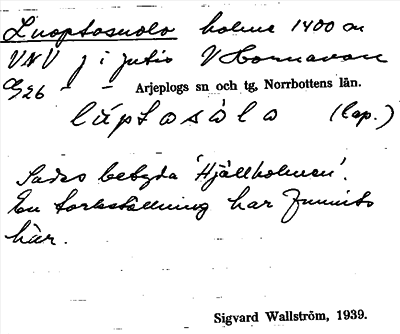 Luoptosuolo holme 1400 m
VNV j i Jutis V Hornavan
9/26 - - Arjeplogs sn och tg, Norrbottens län.
lúptɷsùlɷ (lap.)
Sades betyda 'Hjällholmen'.
En torkställning har funnits
här.
Sigvard Wallström, 1939.